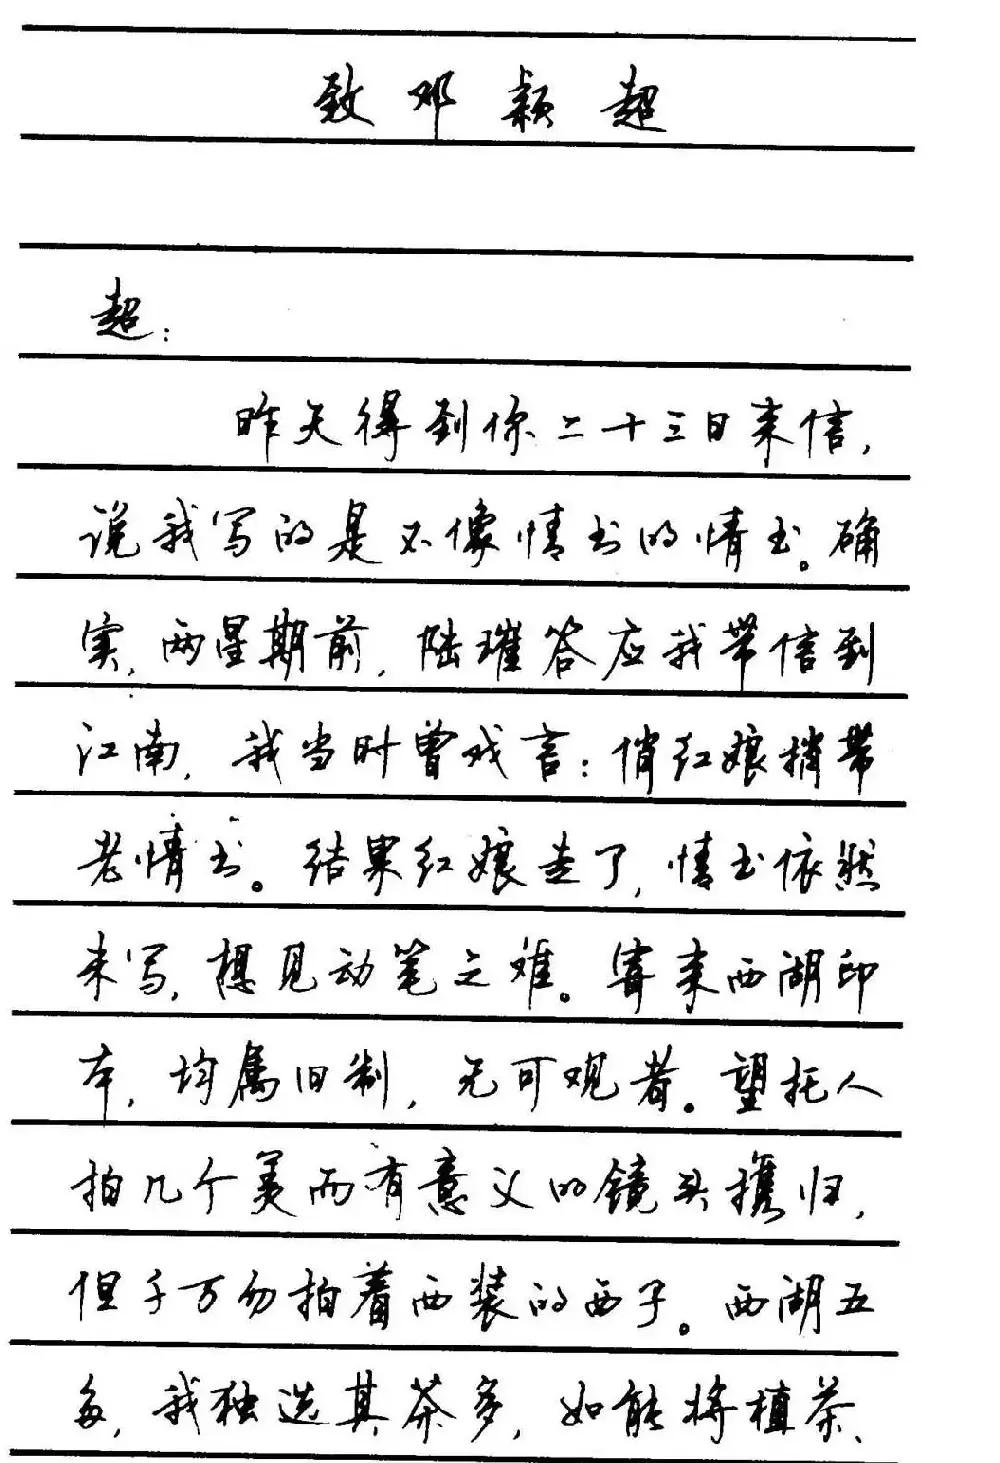 致邓颖超
超：
昨天得到你二十三日来信，
说我写的是不像情书的情书。确
实，两星期前，陆璀答应我带信到
江南，我当时曾戏言：俏红娘捎带
老情书。结果红娘走了，情书依然
未写，想见动笔之难。寄来西湖印
本，均属旧制，无可观者。望托人
拍几个美而有意义的镜头携归，
但千万勿拍着西装的西子。西湖五
多，我独选其茶多，如能将植茶、